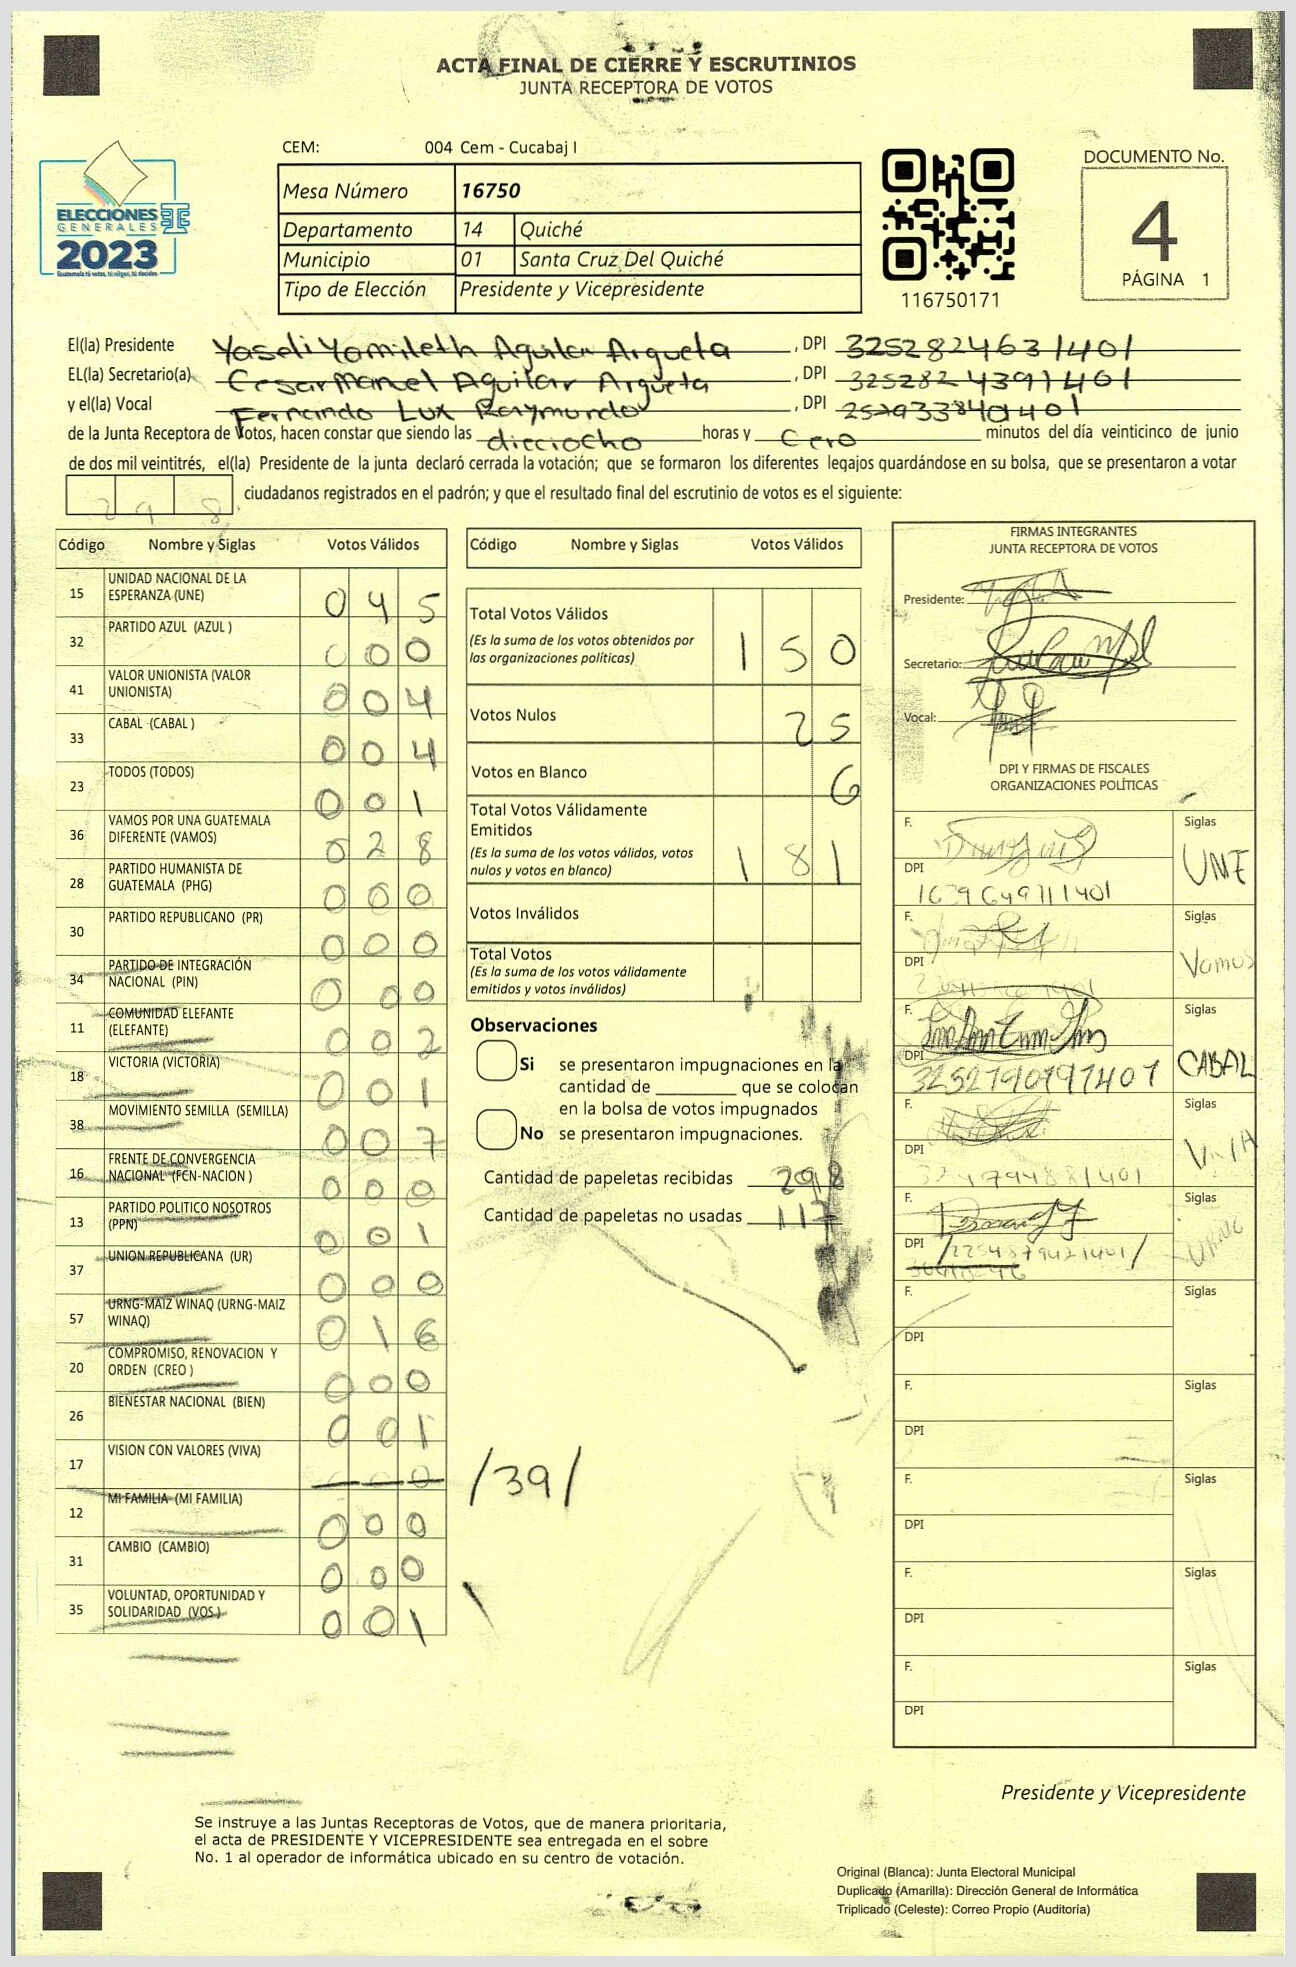 ACTA FINAL DE CIERRE Y ESCRUTINIOS
JUNTA RECEPTORA DE VOTOS
CEM: 004 Cem - Cucabaj I
Mesa Número 16750
Departamento 14 Quiché
Municipio 01 Santa Cruz Del Quiché
Tipo de Elección Presidente y Vicepresidente
ELECCIONES
GENERALES
2023
Guatemala tú votas, tú eliges, tú decides
116750171
DOCUMENTO No.
4
PÁGINA 1
El(la) Presidente Yaseli Yamileth Aguilar Argueta, DPI 3252824631401
EL(la) Secretario(a) Cesar Manuel Aguilar Argueta, DPI 3252824391401
y el(la) Vocal Fernando Lux Raymundo, DPI 2529338401401
de la Junta Receptora de Votos, hacen constar que siendo las dieciocho horas y Cero minutos del día veinticinco de junio
de dos mil veintitrés, el(la) Presidente de la junta declaró cerrada la votación; que se formaron los diferentes legajos guardándose en su bolsa, que se presentaron a votar
298 ciudadanos registrados en el padrón; y que el resultado final del escrutinio de votos es el siguiente:
Código Nombre y Siglas Votos Válidos
15 UNIDAD NACIONAL DE LA ESPERANZA (UNE) 045
32 PARTIDO AZUL (AZUL ) 000
41 VALOR UNIONISTA (VALOR UNIONISTA) 004
33 CABAL (CABAL ) 004
23 TODOS (TODOS) 001
36 VAMOS POR UNA GUATEMALA DIFERENTE (VAMOS) 028
28 PARTIDO HUMANISTA DE GUATEMALA (PHG) 000
30 PARTIDO REPUBLICANO (PR) 000
34 PARTIDO DE INTEGRACIÓN NACIONAL (PIN) 000
11 COMUNIDAD ELEFANTE (ELEFANTE) 002
18 VICTORIA (VICTORIA) 001
38 MOVIMIENTO SEMILLA (SEMILLA) 007
16 FRENTE DE CONVERGENCIA NACIONAL (FCN-NACION ) 000
13 PARTIDO POLITICO NOSOTROS (PPN) 001
37 UNION REPUBLICANA (UR) 000
57 URNG-MAIZ WINAQ (URNG-MAIZ WINAQ) 016
20 COMPROMISO, RENOVACION Y ORDEN (CREO ) 000
26 BIENESTAR NACIONAL (BIEN) 001
17 VISION CON VALORES (VIVA) /39/
12 MI FAMILIA (MI FAMILIA) 000
31 CAMBIO (CAMBIO) 000
35 VOLUNTAD, OPORTUNIDAD Y SOLIDARIDAD (VOS ) 001
Código Nombre y Siglas Votos Válidos
Total Votos Válidos 150
(Es la suma de los votos obtenidos por
las organizaciones políticas)
Votos Nulos 25
Votos en Blanco 6
Total Votos Válidamente
Emitidos 181
(Es la suma de los votos válidos, votos
nulos y votos en blanco)
Votos Inválidos
Total Votos
(Es la suma de los votos válidamente
emitidos y votos inválidos)
Observaciones
Si se presentaron impugnaciones en la
cantidad de ________ que se colocan
en la bolsa de votos impugnados
No se presentaron impugnaciones.
Cantidad de papeletas recibidas 298
Cantidad de papeletas no usadas 117
FIRMAS INTEGRANTES
JUNTA RECEPTORA DE VOTOS
Presidente:
Secretario:
Vocal:
DPI Y FIRMAS DE FISCALES
ORGANIZACIONES POLÍTICAS
F. Siglas
DPI UNE
F. Siglas
DPI Vamos
F. Siglas
DPI 3252790797401 CABAL
F. Siglas
DPI
F. Siglas
DPI
F. Siglas
DPI
F. Siglas
DPI
F. Siglas
DPI
F. Siglas
DPI
F. Siglas
DPI
Presidente y Vicepresidente
Se instruye a las Juntas Receptoras de Votos, que de manera prioritaria,
el acta de PRESIDENTE Y VICEPRESIDENTE sea entregada en el sobre
No. 1 al operador de informática ubicado en su centro de votación.
Original (Blanca): Junta Electoral Municipal
Duplicado (Amarilla): Dirección General de Informática
Triplicado (Celeste): Correo Propio (Auditoría)